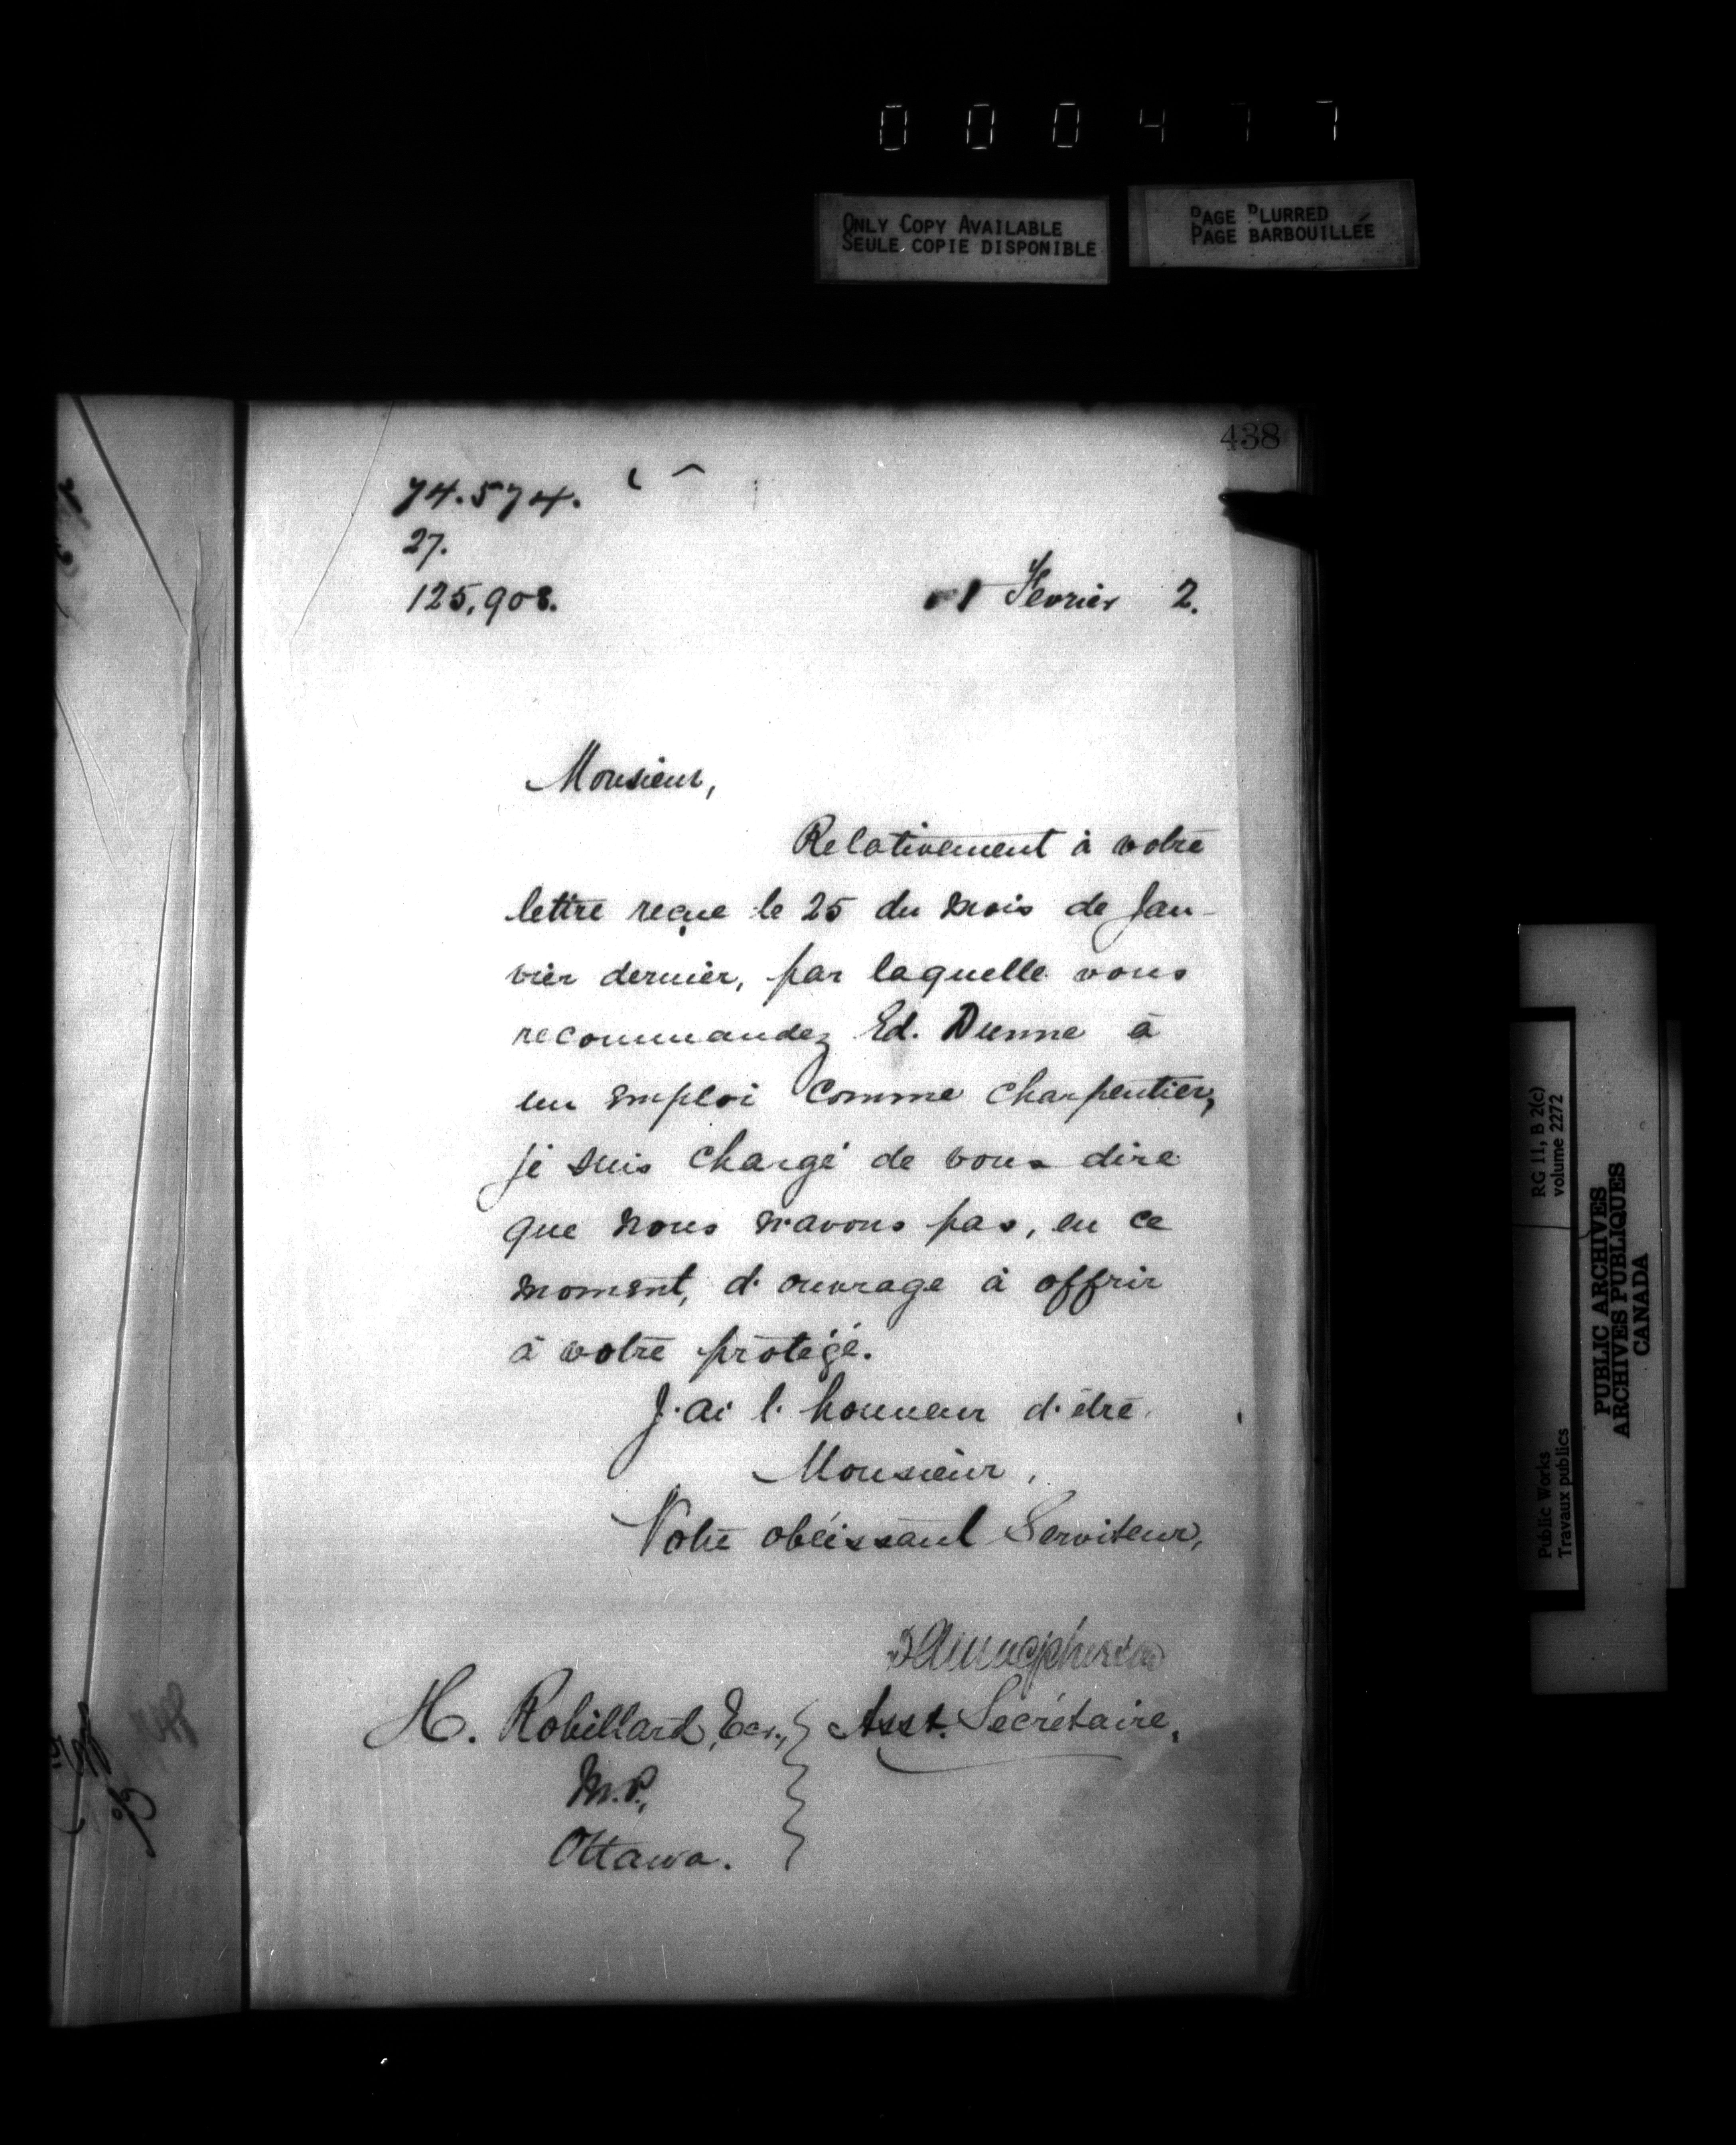 000477
ONLY COPY AVAILABLE
SEULE COPIE DISPONIBLE
PAGE BLURRED
PAGE BARBOUILLÉE
438
74.574.
27.
125,908.
1 Février 2.
Monsieur,
Relativement à votre
lettre reçue le 25 du mois de Jan-
vier dernier, par laquelle vous
recommandez Ed. Dunne à
un emploi comme charpentier,
je suis chargé de vous dire
que nous n'avons pas, en ce
moment, d'ouvrage à offrir
à votre protégé.
J'ai l'honneur d'être
Monsieur,
Votre obéissant Serviteur,
H. Robillard, Ecr., Asst. Secrétaire.
M.P.,
Ottawa.
RG 11, B 2(c)
volume 2272
Public Works
Travaux publics
PUBLIC ARCHIVES
ARCHIVES PUBLIQUES
CANADA